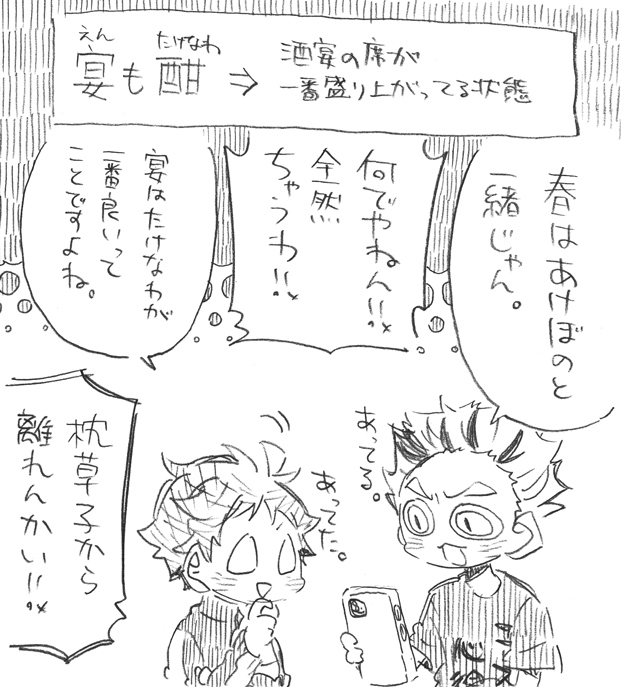 宴も酣⇒酒宴の席が
えん たけなわ
一番盛り上がってる状態
春はあけぼのと
一緒じゃん。
何でやねん!!
全然
ちゃうわ!!
宴はたけなわが
一番良いって
ことですよね。
あってる。
あってた。
枕草子から
離れんかい!!